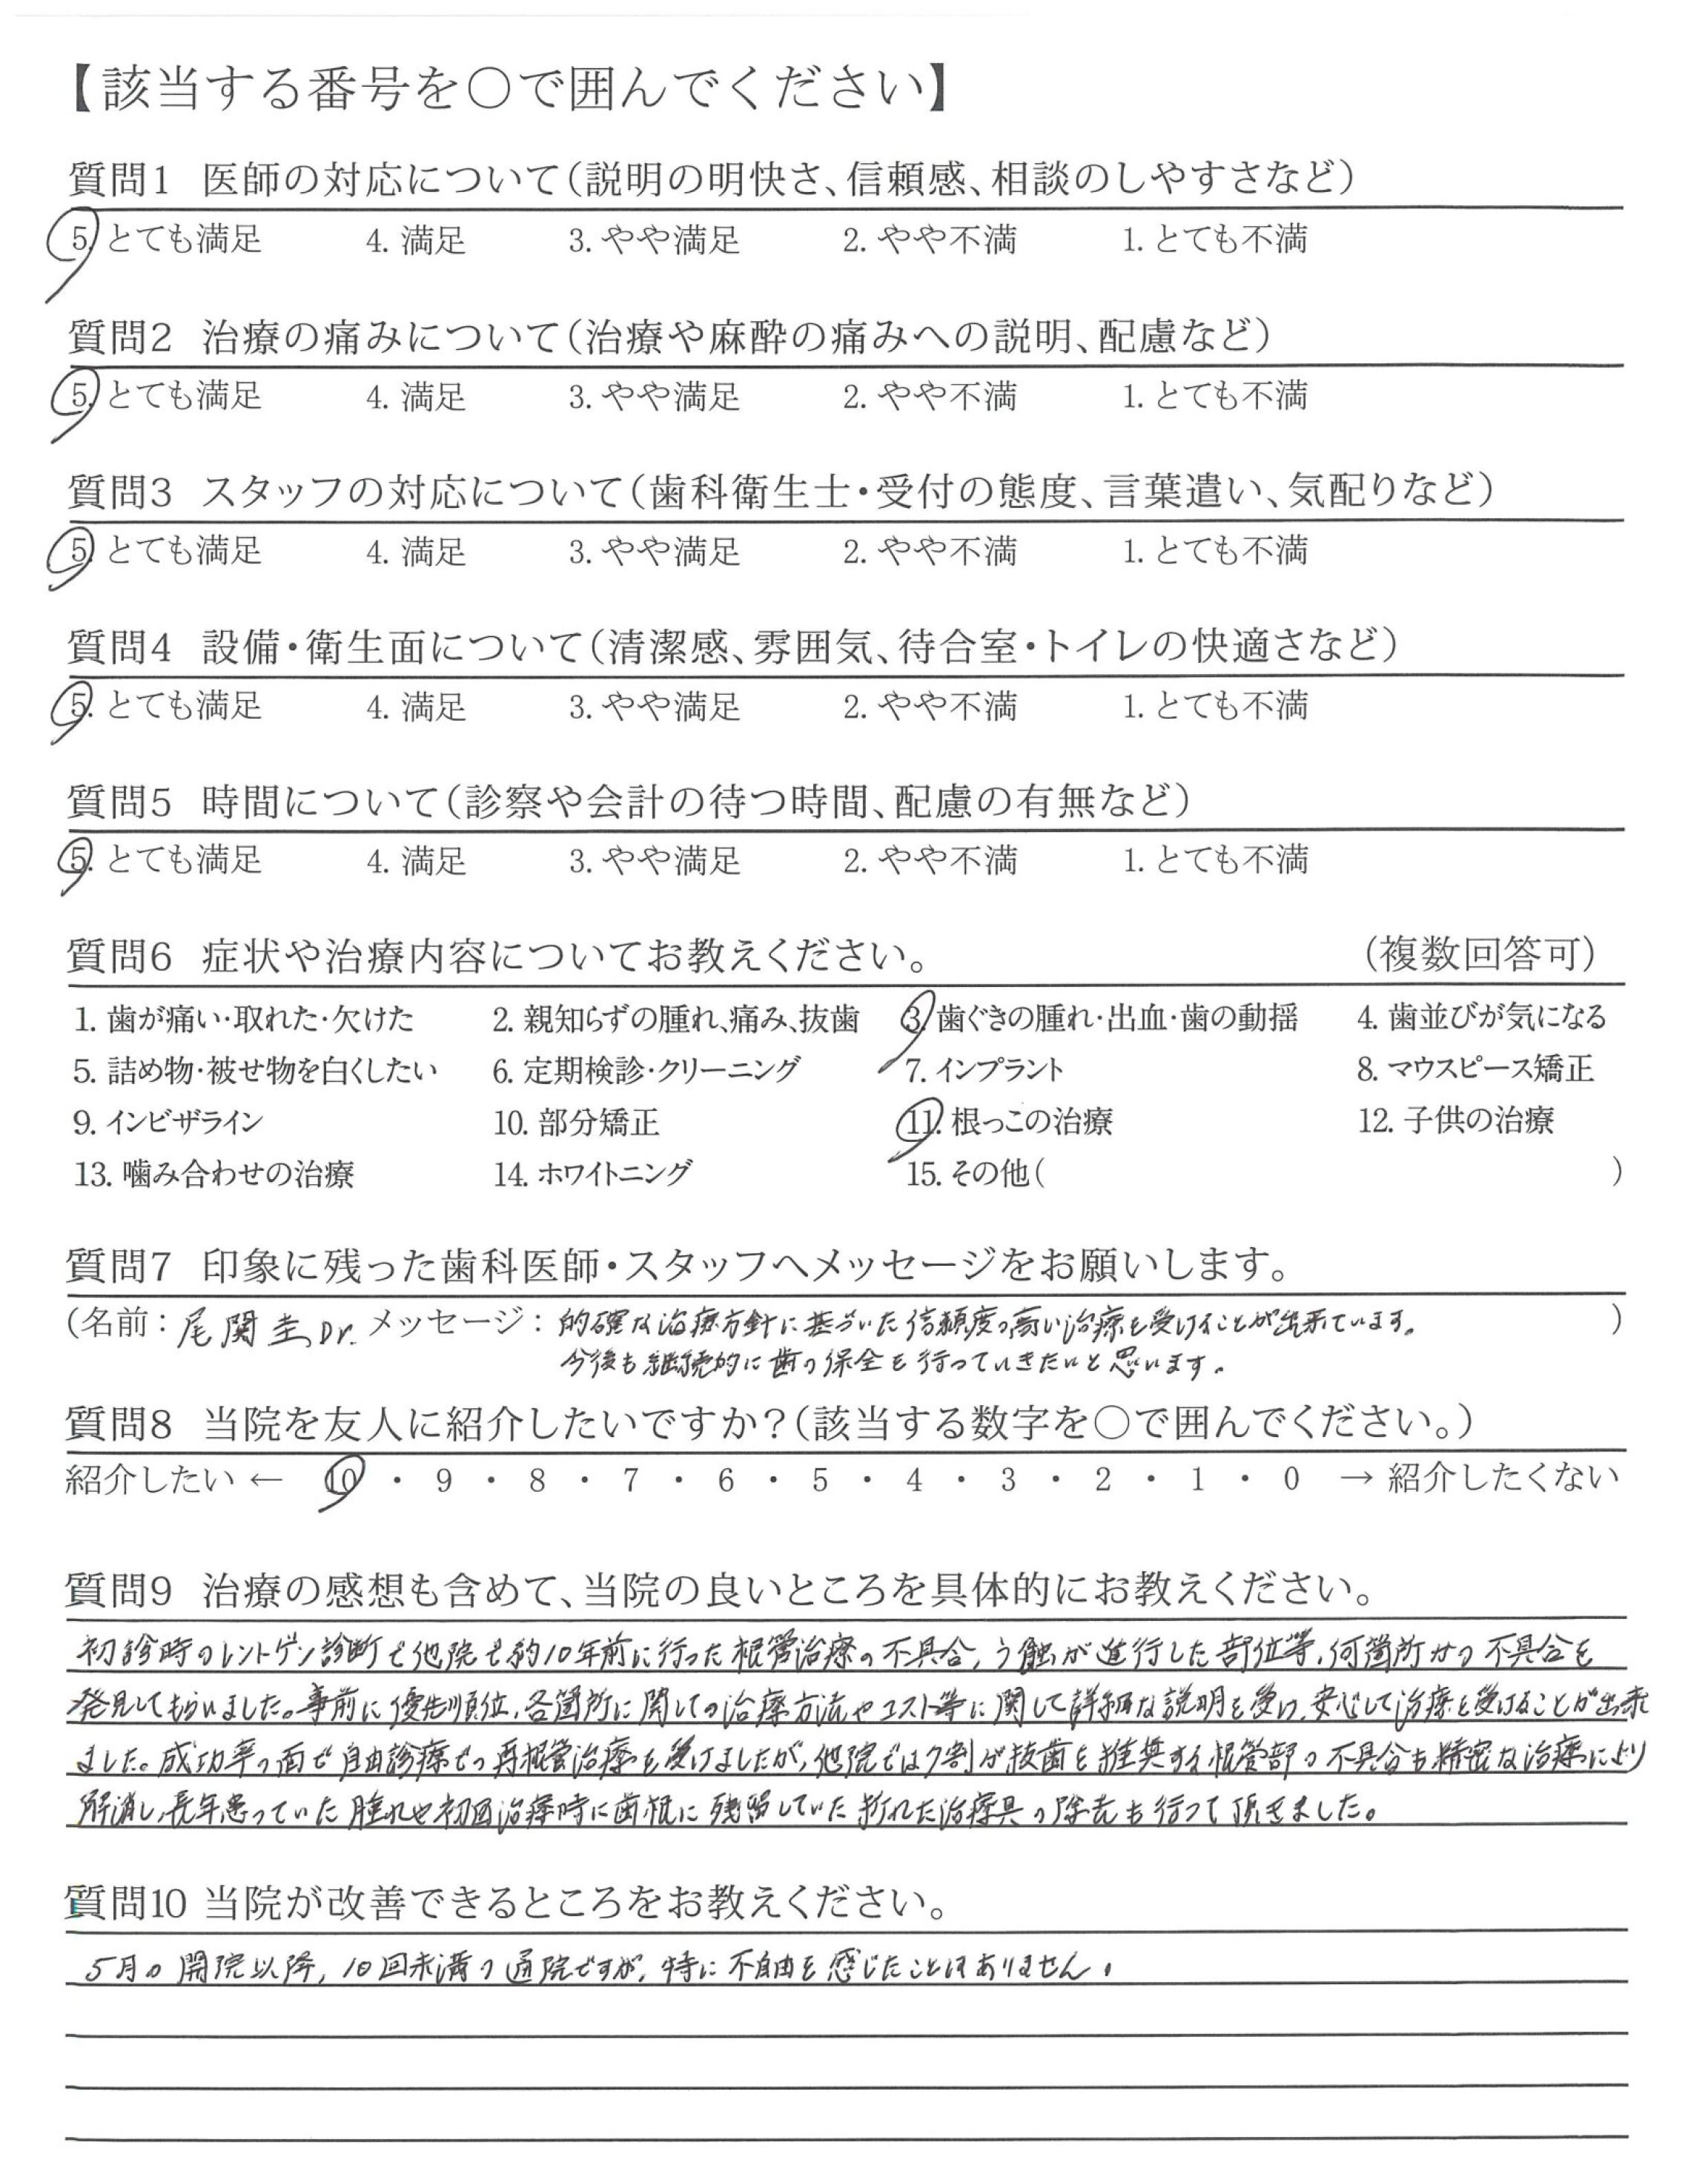 【該当する番号を〇で囲んでください】
質問1 医師の対応について(説明の明快さ、信頼感、相談のしやすさなど)
5. とても満足 4. 満足 3. やや満足 2. やや不満 1. とても不満
質問2 治療の痛みについて(治療や麻酔の痛みへの説明、配慮など)
5. とても満足 4. 満足 3. やや満足 2. やや不満 1. とても不満
質問3 スタッフの対応について(歯科衛生士・受付の態度、言葉遣い、気配りなど)
5. とても満足 4. 満足 3. やや満足 2. やや不満 1. とても不満
質問4 設備・衛生面について(清潔感、雰囲気、待合室・トイレの快適さなど)
5. とても満足 4. 満足 3. やや満足 2. やや不満 1. とても不満
質問5 時間について(診察や会計の待つ時間、配慮の有無など)
5. とても満足 4. 満足 3. やや満足 2. やや不満 1. とても不満
質問6 症状や治療内容についてお教えください。 (複数回答可)
1. 歯が痛い・取れた・欠けた 2. 親知らずの腫れ、痛み、抜歯 3. 歯ぐきの腫れ・出血・歯の動揺 4. 歯並びが気になる
5. 詰め物・被せ物を白くしたい 6. 定期検診・クリーニング 7. インプラント 8. マウスピース矯正
9. インビザライン 10. 部分矯正 11. 根っこの治療 12. 子供の治療
13. 噛み合わせの治療 14. ホワイトニング 15. その他( )
質問7 印象に残った歯科医師・スタッフへメッセージをお願いします。
(名前：尾関圭Dr. メッセージ：的確な治療方針に基づいた信頼度の高い治療を受けることが出来ています。 )
今後も継続的に歯の保全を行っていきたいと思います。
質問8 当院を友人に紹介したいですか？(該当する数字を〇で囲んでください。)
紹介したい ← 10 ・ 9 ・ 8 ・ 7 ・ 6 ・ 5 ・ 4 ・ 3 ・ 2 ・ 1 ・ 0 → 紹介したくない
質問9 治療の感想も含めて、当院の良いところを具体的にお教えください。
初診時のレントゲン診断で他院で約10年前に行った根管治療の不具合、う触が進行した部位等、何箇所かの不具合を
発見してもらいました。事前に優先順位、各箇所に関しての治療方法やコスト等に関して詳細な説明を受け、安心して治療を受けることが出来
ました。成功率の面で自由診療での再根管治療を受けましたが、他院では7割が抜歯を推奨する根管部の不具合も精密な治療により
解消し、長年患っていた腫れや初回治療時に歯根に残留していた折れた治療具の除去も行って頂きました。
質問10 当院が改善できるところをお教えください。
5月の開院以降、10回未満の通院ですが、特に不自由を感じたことはありません。